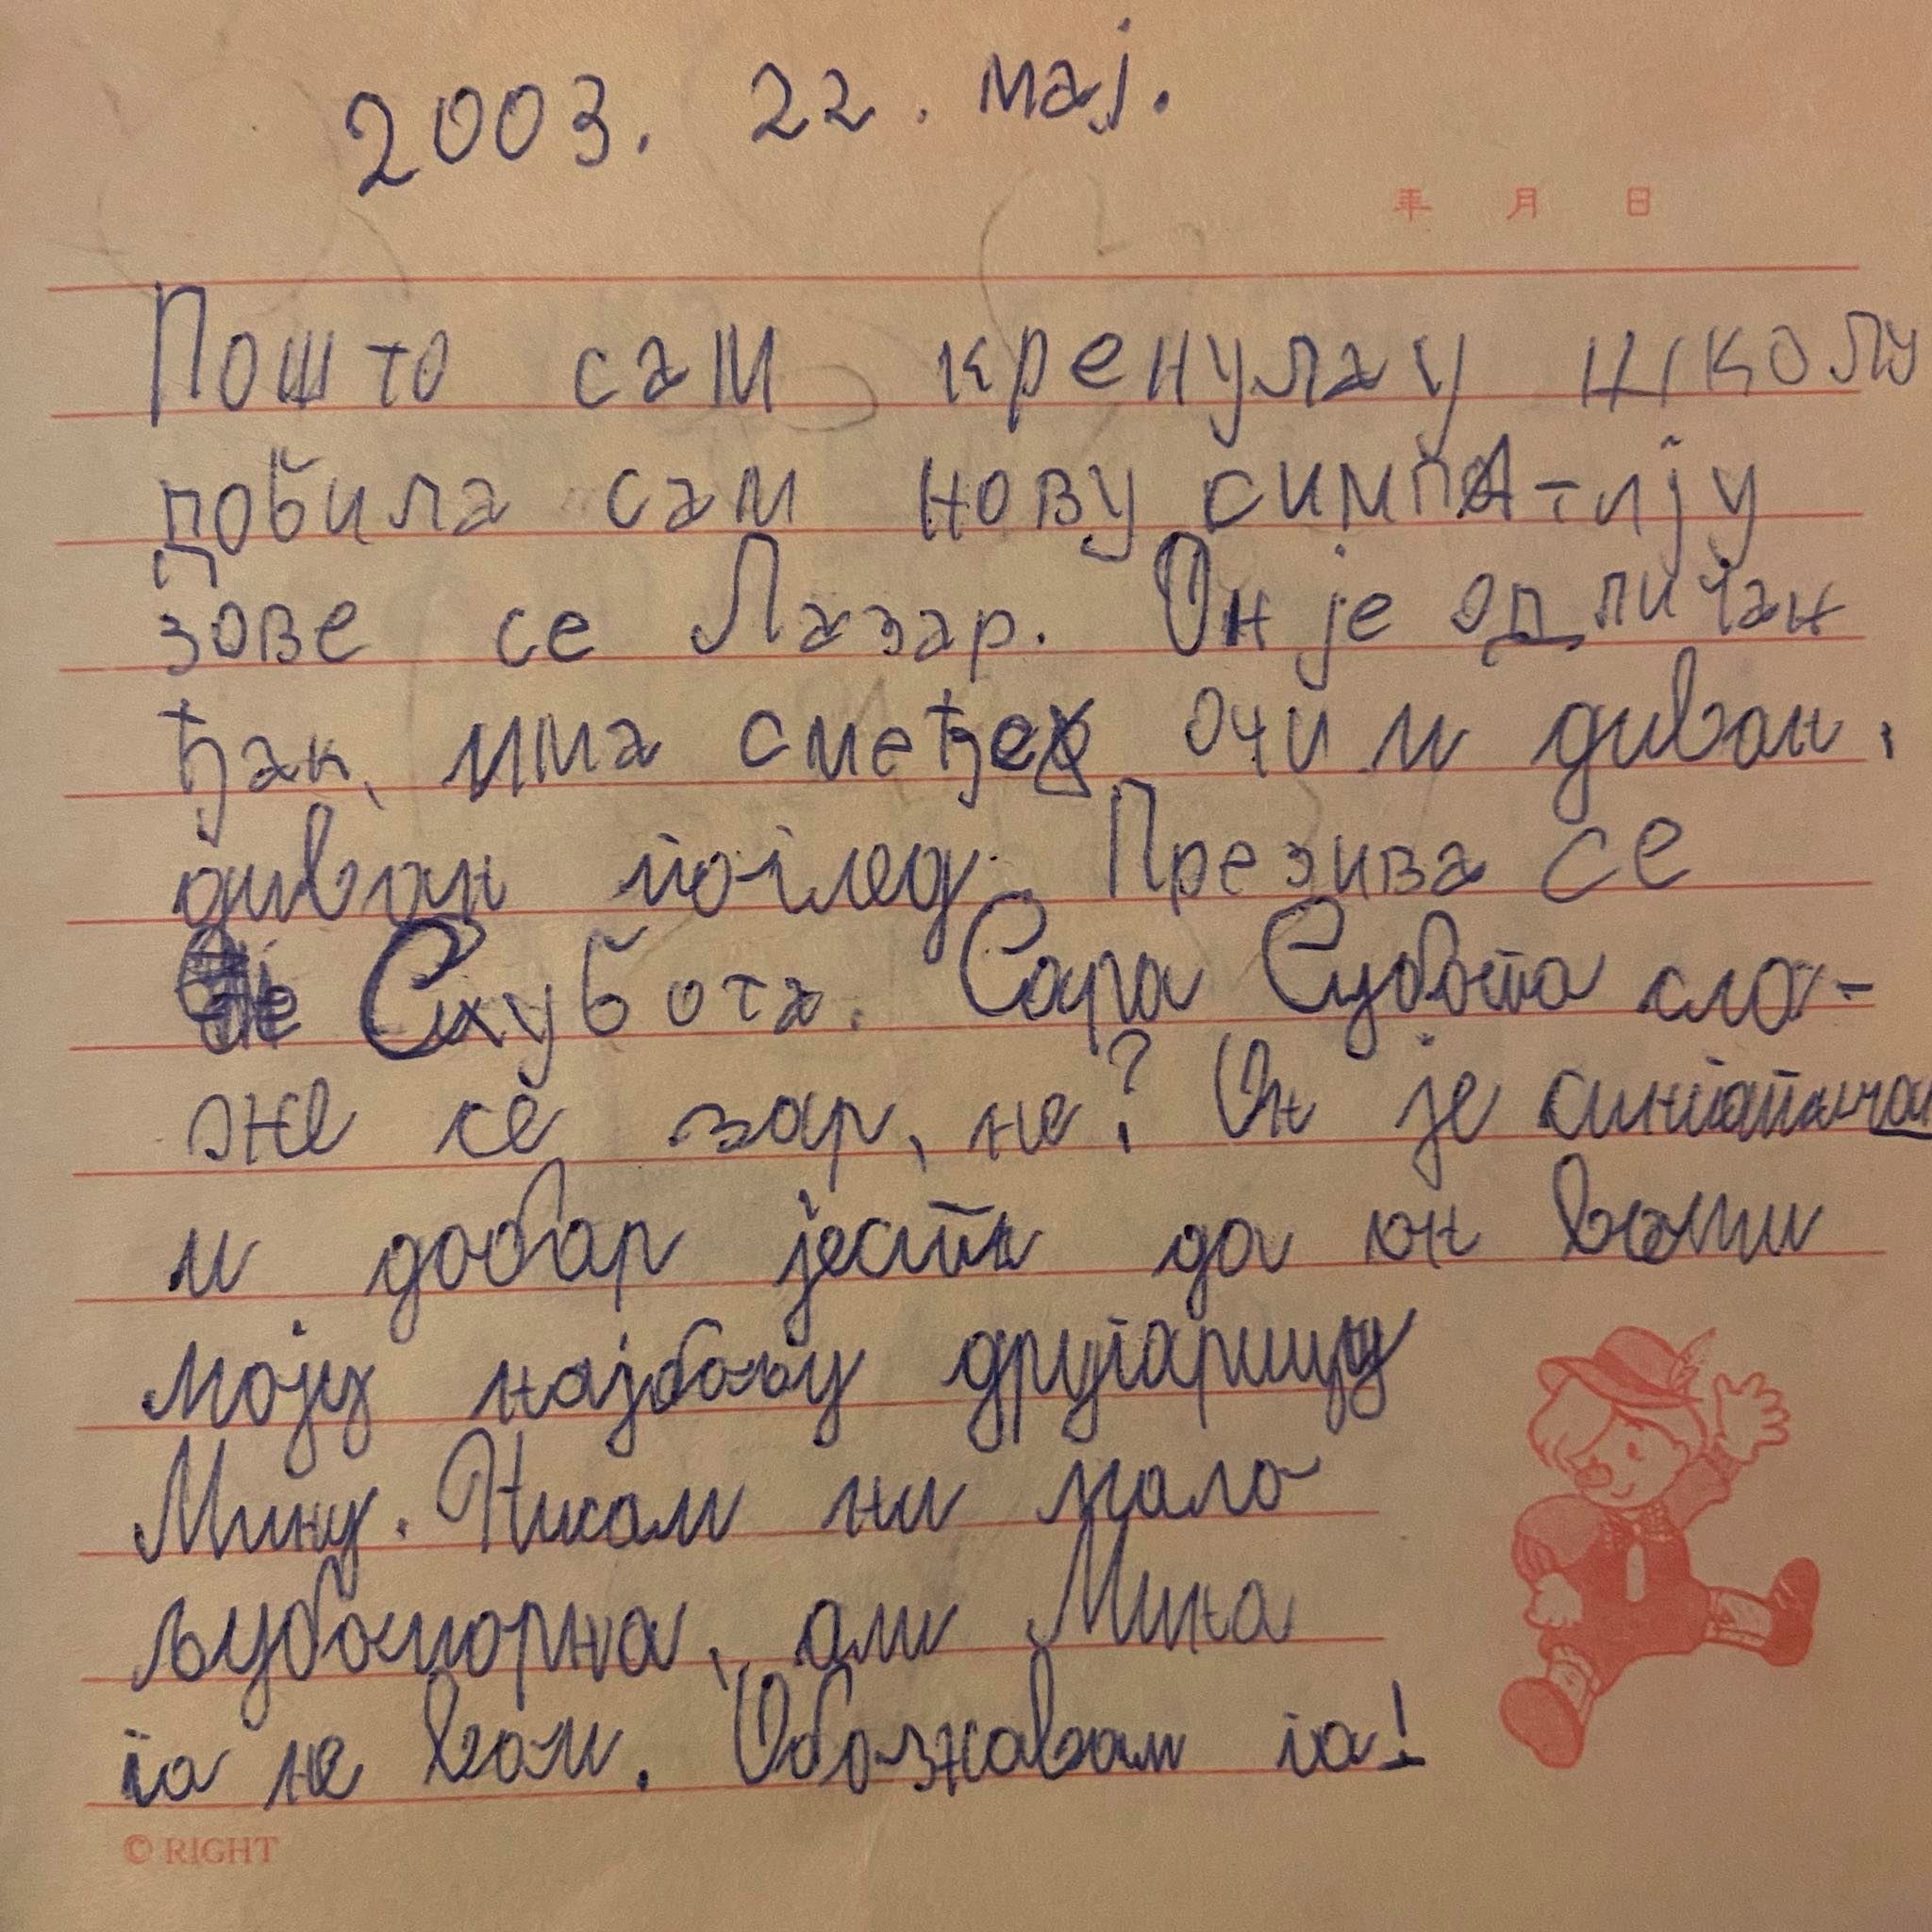 2003. 22. мај.
年 月 日
Пошто сам кренула у школу
добила сам нову симпАтију
зове се Лазар. Он је одличан
ђак, има смеђе очи и диван,
диван поглед. Презива се
Субота. Сара Субота сла-
же се зар, не? Он је симпатичан
и добар јесте да он воли
моју најбољу другарицу
Мину. Нисам ни мало
љубоморна, али Мина
га не воли. Обожавам га!
© RIGHT